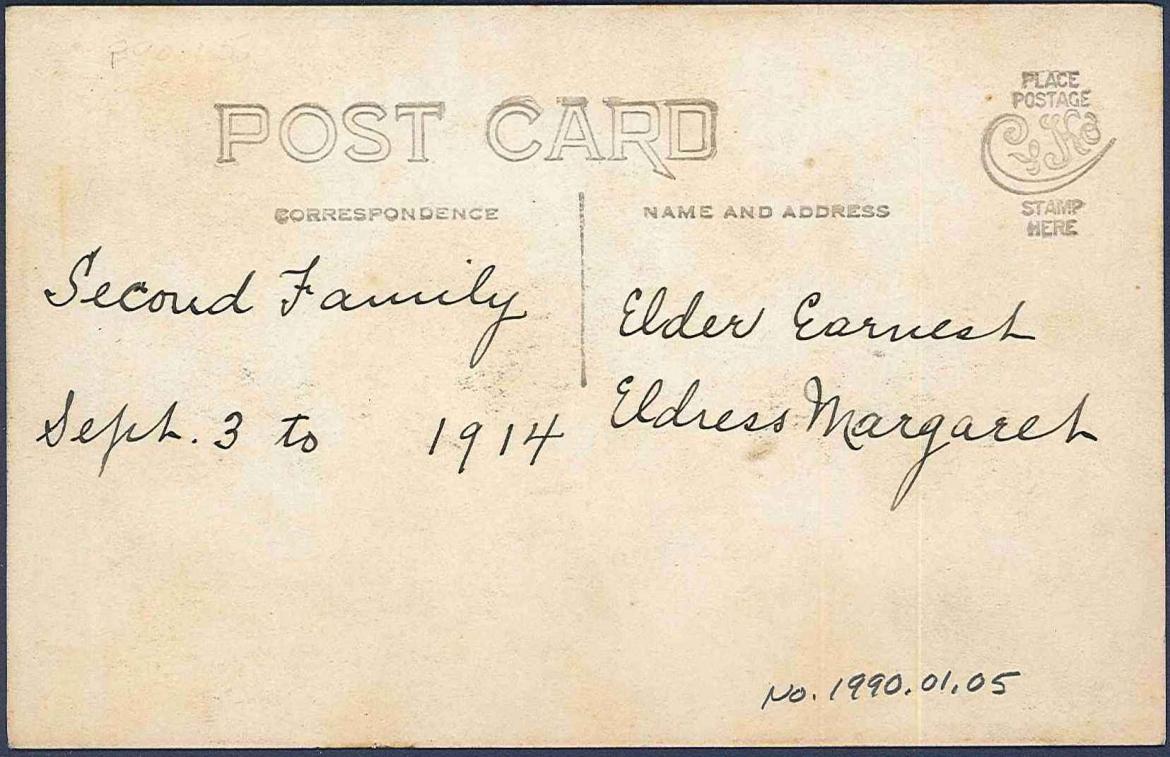 POST CARD
PLACE
POSTAGE
CYKO
STAMP
HERE
CORRESPONDENCE
NAME AND ADDRESS
Second Family
Sept. 3 to 1914
Elder Earnest
Eldress Margaret
No. 1990.01.05